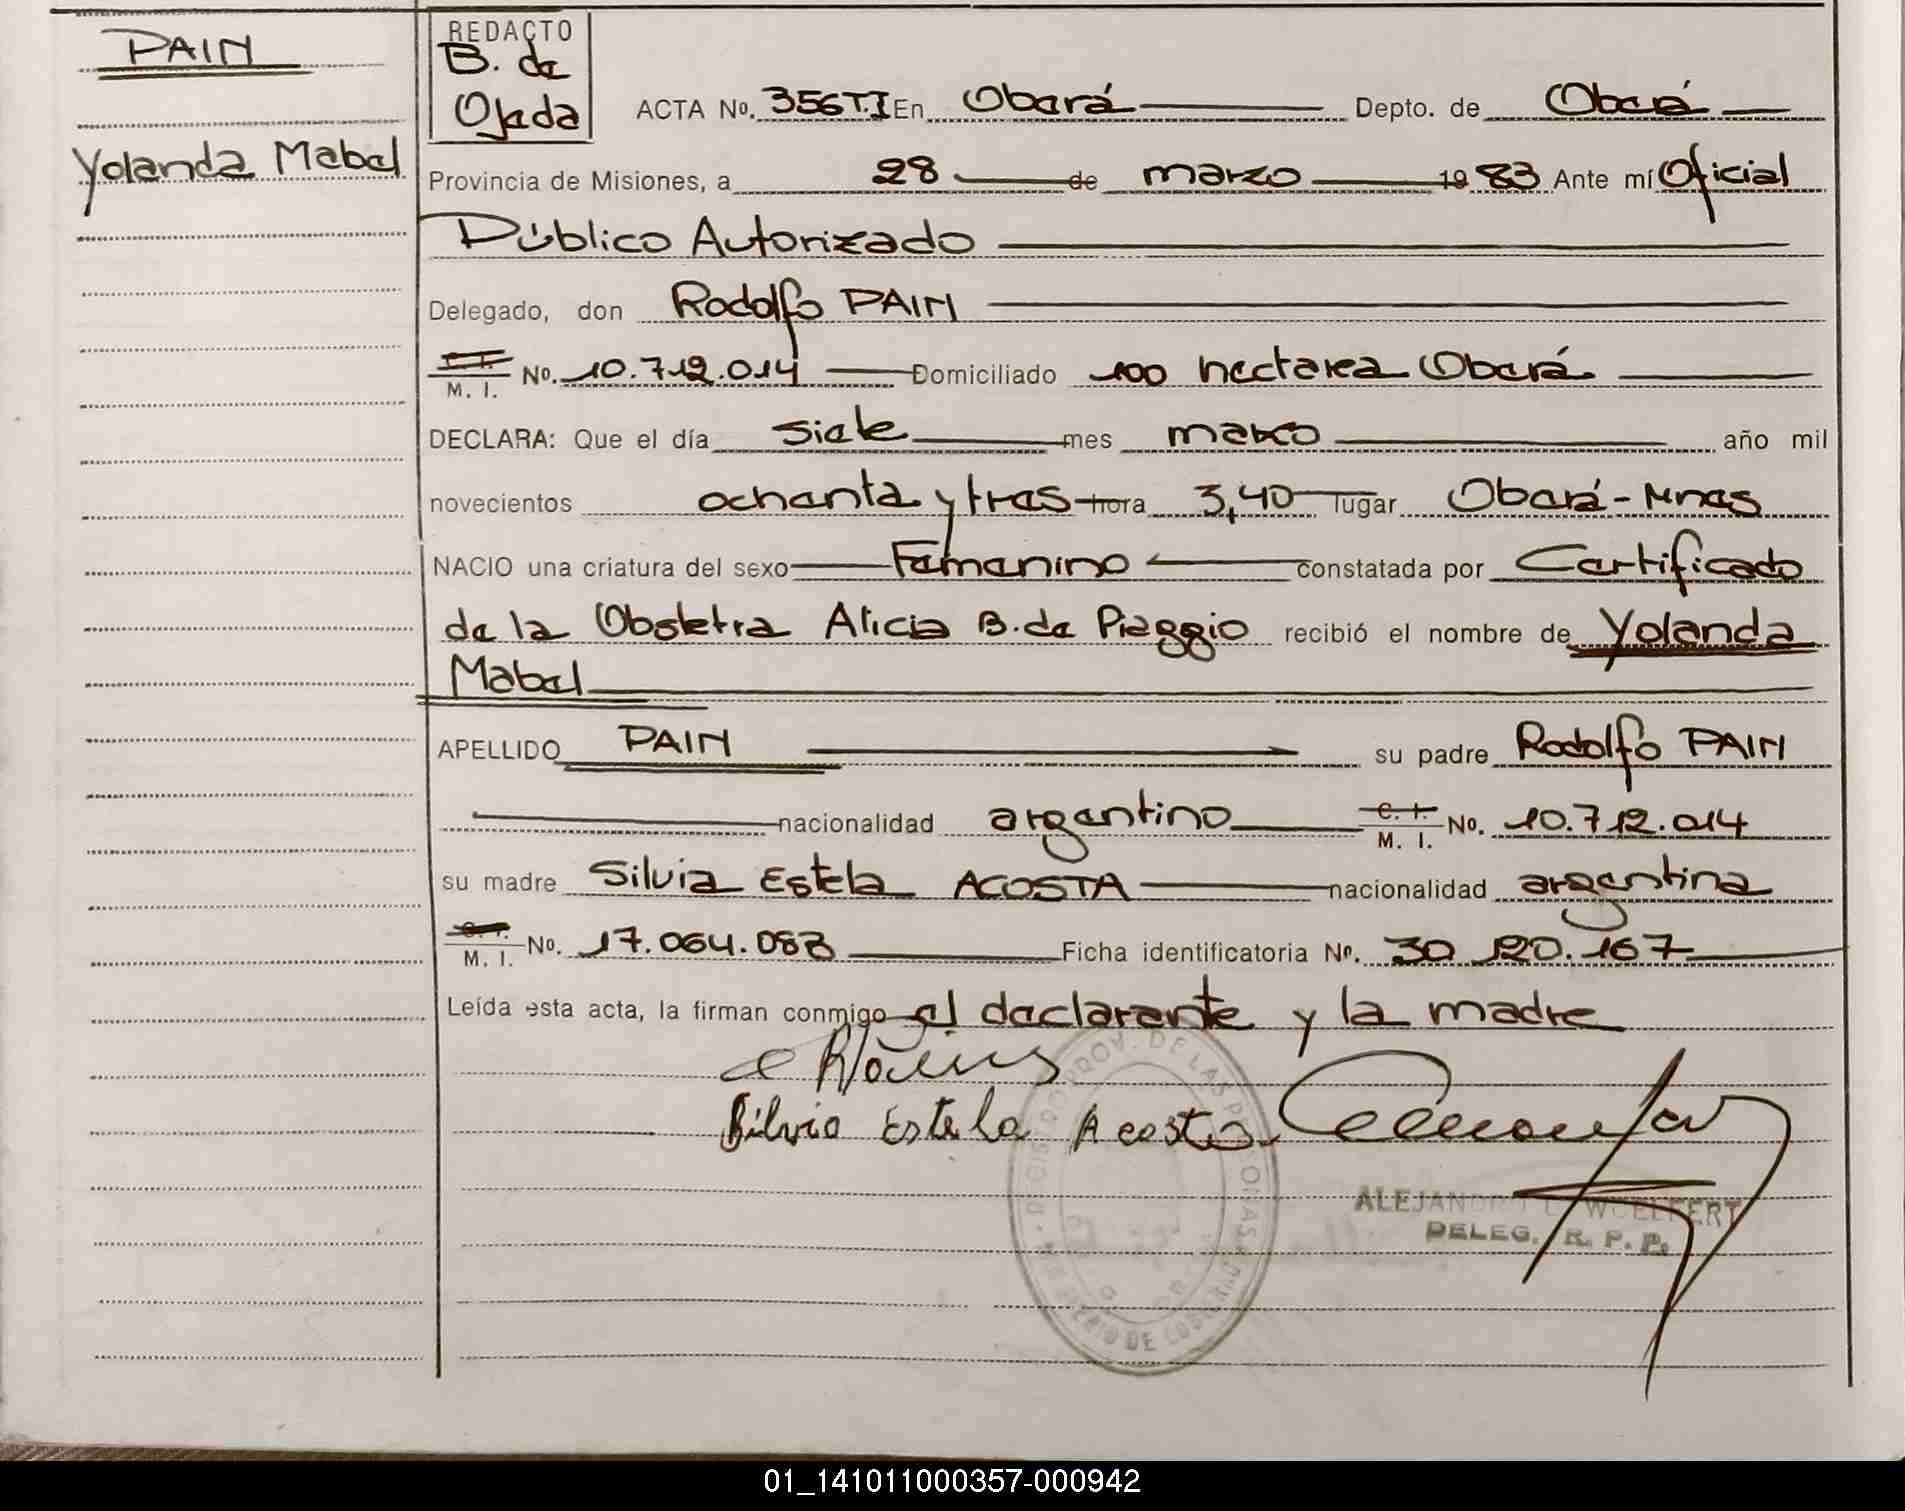 PAIN
Yolanda Mabel
REDACTO
B. de
Ojeda
ACTA No. 356 T.I En Oberá Depto. de Oberá
Provincia de Misiones, a 28 de marzo 1983 Ante mí Oficial
Público Autorizado
Delegado, don Rodolfo PAIN
C. I.
M. I. No. 10.712.014 Domiciliado 100 hectarea Oberá
DECLARA: Que el día siete mes marzo año mil
novecientos ochenta y tres hora 3,40 lugar Oberá-Mnes
NACIO una criatura del sexo Femenino constatada por Certificado
de la Obstetra Alicia B. de Piaggio recibió el nombre de Yolanda
Mabel
APELLIDO PAIN su padre Rodolfo PAIN
nacionalidad argentino C. I.
M. I. No. 10.712.014
su madre Silvia Estela ACOSTA nacionalidad argentina
C. I.
M. I. No. 17.064.083 Ficha identificatoria No. 30 120.167
Leída esta acta, la firman conmigo el declarante y la madre
Silvia Estela Acosta
ALEJANDRO WOELFERT
DELEG. R. P. P.
01_141011000357-000942